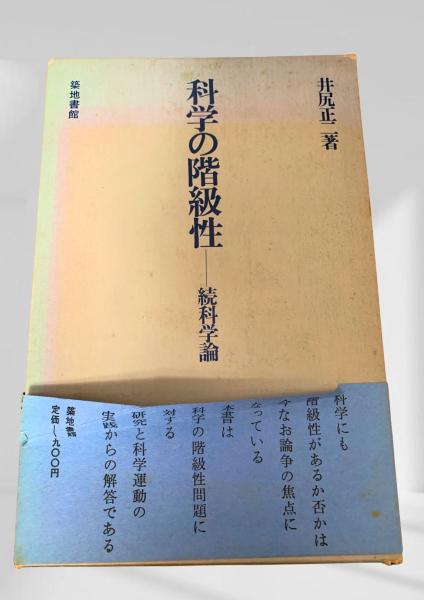 井尻正二著
科学の階級性
——続科学論
築地書館
科学にも
階級性があるか否かは
今なお論争の焦点に
なっている
本書は
科学の階級性問題に
対する
研究と科学運動の
実践からの解答である
築地書館
定価—九〇〇円